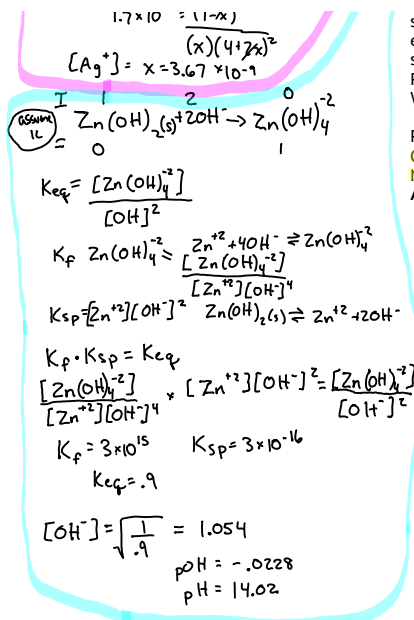 1.7×10 = (1-x)
(x)(4+2x)²
[Ag⁺] = x = 3.67 *10-9
I 1 2 0
assume 1L
Zn(OH)₂(s) +2OH⁻ → Zn(OH)₄⁻²
= 0 1
Keq = [Zn(OH)₄⁻²]
[OH]²
Kf Zn(OH)₄⁻² = Zn⁺² +4OH⁻ ⇌ Zn(OH)₄⁻²
[Zn(OH)₄⁻²]
[Zn⁺²][OH⁻]⁴
Ksp=[Zn⁺²][OH⁻]² Zn(OH)₂(s) ⇌ Zn⁺² +2OH⁻
Kf · Ksp = Keq
[Zn(OH)₄⁻²] * [Zn⁺²][OH⁻]² = [Zn(OH)₄⁻²]
[Zn⁺²][OH⁻]⁴ [OH⁻]²
Kf = 3*10¹⁵ Ksp = 3*10⁻¹⁶
Keq = .9
[OH⁻] = √1/.9 = 1.054
pOH = -.0228
pH = 14.02